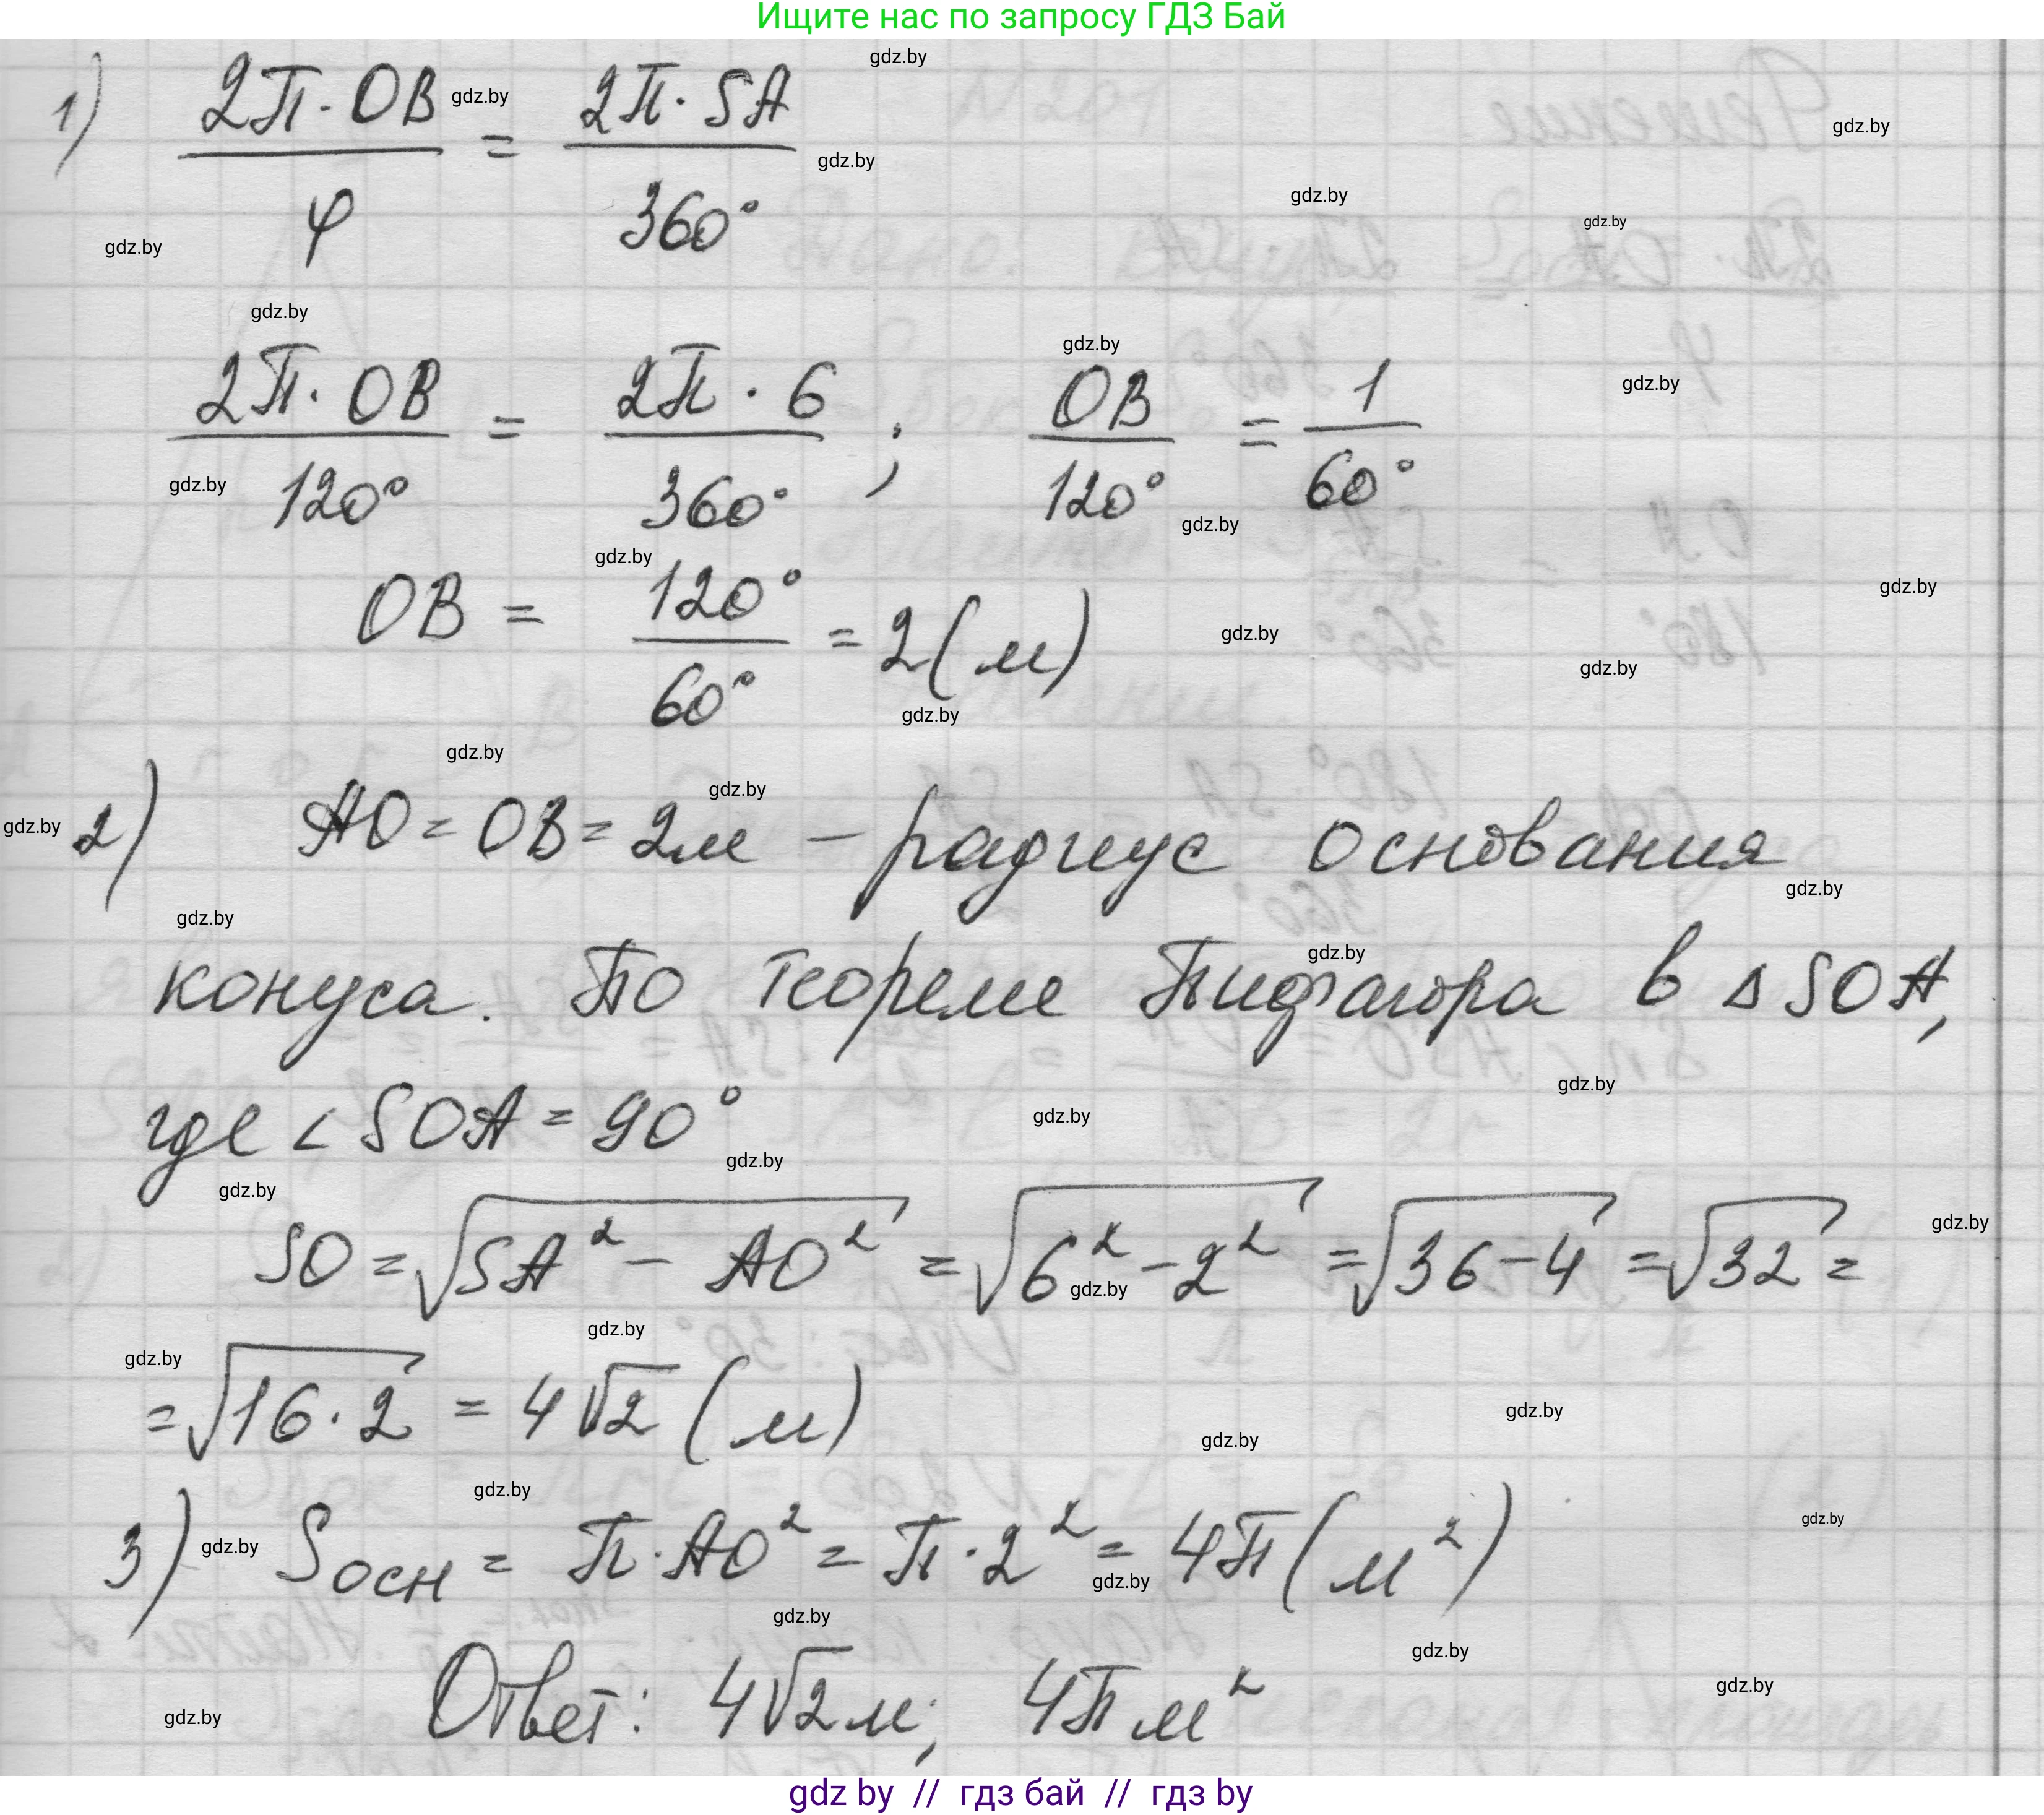 Ищите нас по запросу ГДЗ Бай
1) 2π · OB / φ = 2π · SA / 360°
2π · OB / 120° = 2π · 6 / 360° ; OB / 120° = 1 / 60°
OB = 120° / 60° = 2 (м)
2) AO = OB = 2м – радиус основания
конуса. По теореме Пифагора в Δ SOA,
где ∠ SOA = 90°
SO = √(SA² – AO²) = √(6² – 2²) = √(36 – 4) = √32 =
= √(16 · 2) = 4√2 (м)
3) Sосн = π · AO² = π · 2² = 4π (м²)
Ответ: 4√2 м; 4π м²
gdz by // гдз бай // гдз by